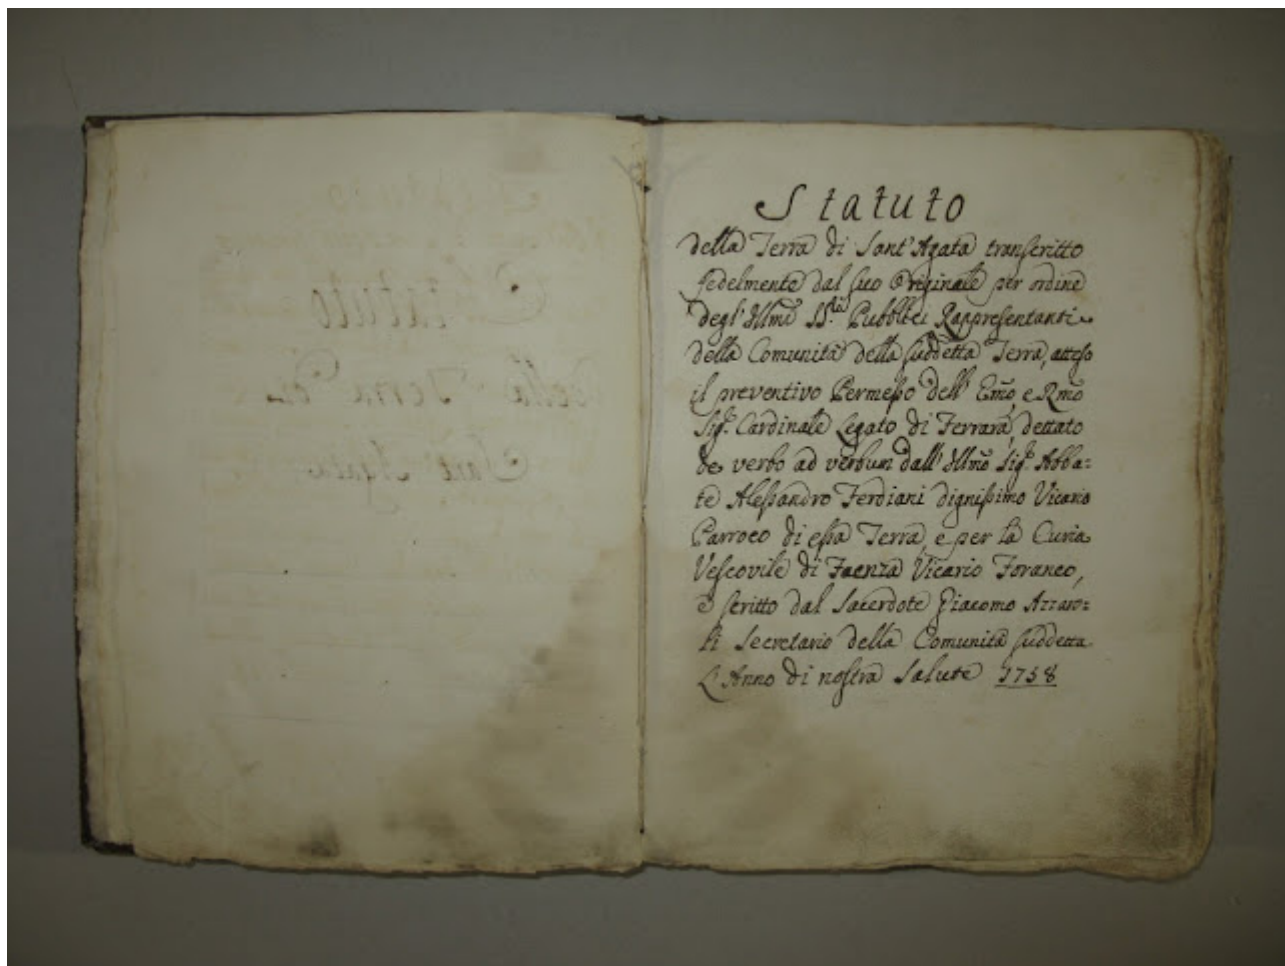 Statuto
della Terra di Sant'Agata transcritto
fedelmente dal suo Originale per ordine
degl'Illmi SS.ri Pubblici Rappresentanti
della Comunità della suddetta Terra, atteso
il preventivo Permesso dell'Emo, e Rmo
Sig.r Cardinale Legato di Ferrara, dettato
de verbo ad verbum dall'Illmo Sig.r Abba=
te Alessandro Ferdiani dignissimo Vicario
Parroco di essa Terra, e per la Curia
Vescovile di Faenza Vicario Foraneo,
e scritto dal Sacerdote Giacomo Azzaro=
li Secretario della Comunità suddetta
L'Anno di nostra Salute 1758